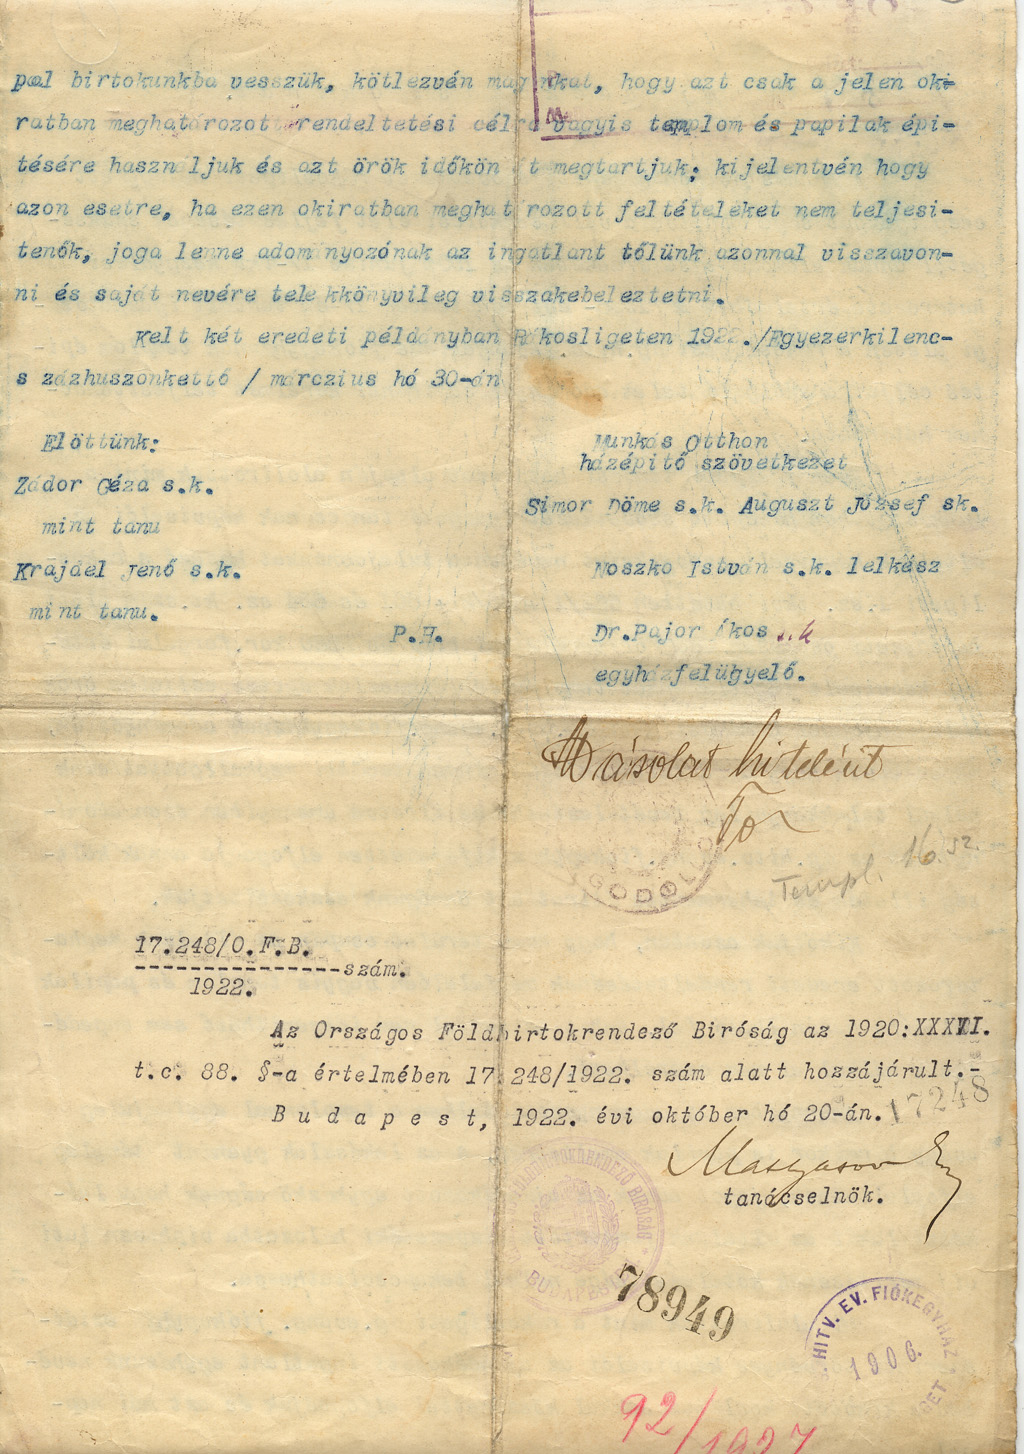 pal birtokunkba vesszük, kötlezvén magunkat, hogy azt csak a jelen oki-
ratban meghatározott rendeltetési célra vagyis templom és papilak épi-
tésére használjuk és azt örök időkön át megtartjuk; kijelentvén hogy
azon esetre, ha ezen okiratban meghatározott feltételeket nem teljesi-
tenők, joga lenne adományozónak az ingatlant tőlünk azonnal visszavon-
ni és saját nevére telekkönyvileg visszakebeleztetni.
Kelt két eredeti példányban Rákosligeten 1922./Egyezerkilenc-
s zázhuszonkettő / márczius hó 30-án
Előttünk:
Munkás Otthon
házépitő szövetkezet
Zádor Géza s.k.
Simor Döme s.k. Auguszt József sk.
mint tanu
Krajdel Jenő s.k.
Noszko István s.k. lelkész
mint tanu.
P.H.
Dr.Pajor Ákos s.k
egyházfelügyelő.
Másolat hiteléül
GÖDÖLLŐ
Templ. 16. sz.
17.248/O.F.B.
---------------szám.
1922.
Az Országos Földbirtokrendező Biróság az 1920:XXXVI.
t.c. 88. §-a értelmében 17.248/1922. szám alatt hozzájárult.-
Budapest, 1922. évi október hó 20-án.
17248
tanácselnök.
FÖLDBIRTOKRENDEZŐ BIRÓSÁG
BUDAPEST
78949
HITV. EV. FIÓKEGYHÁZ
1906.
92/1927